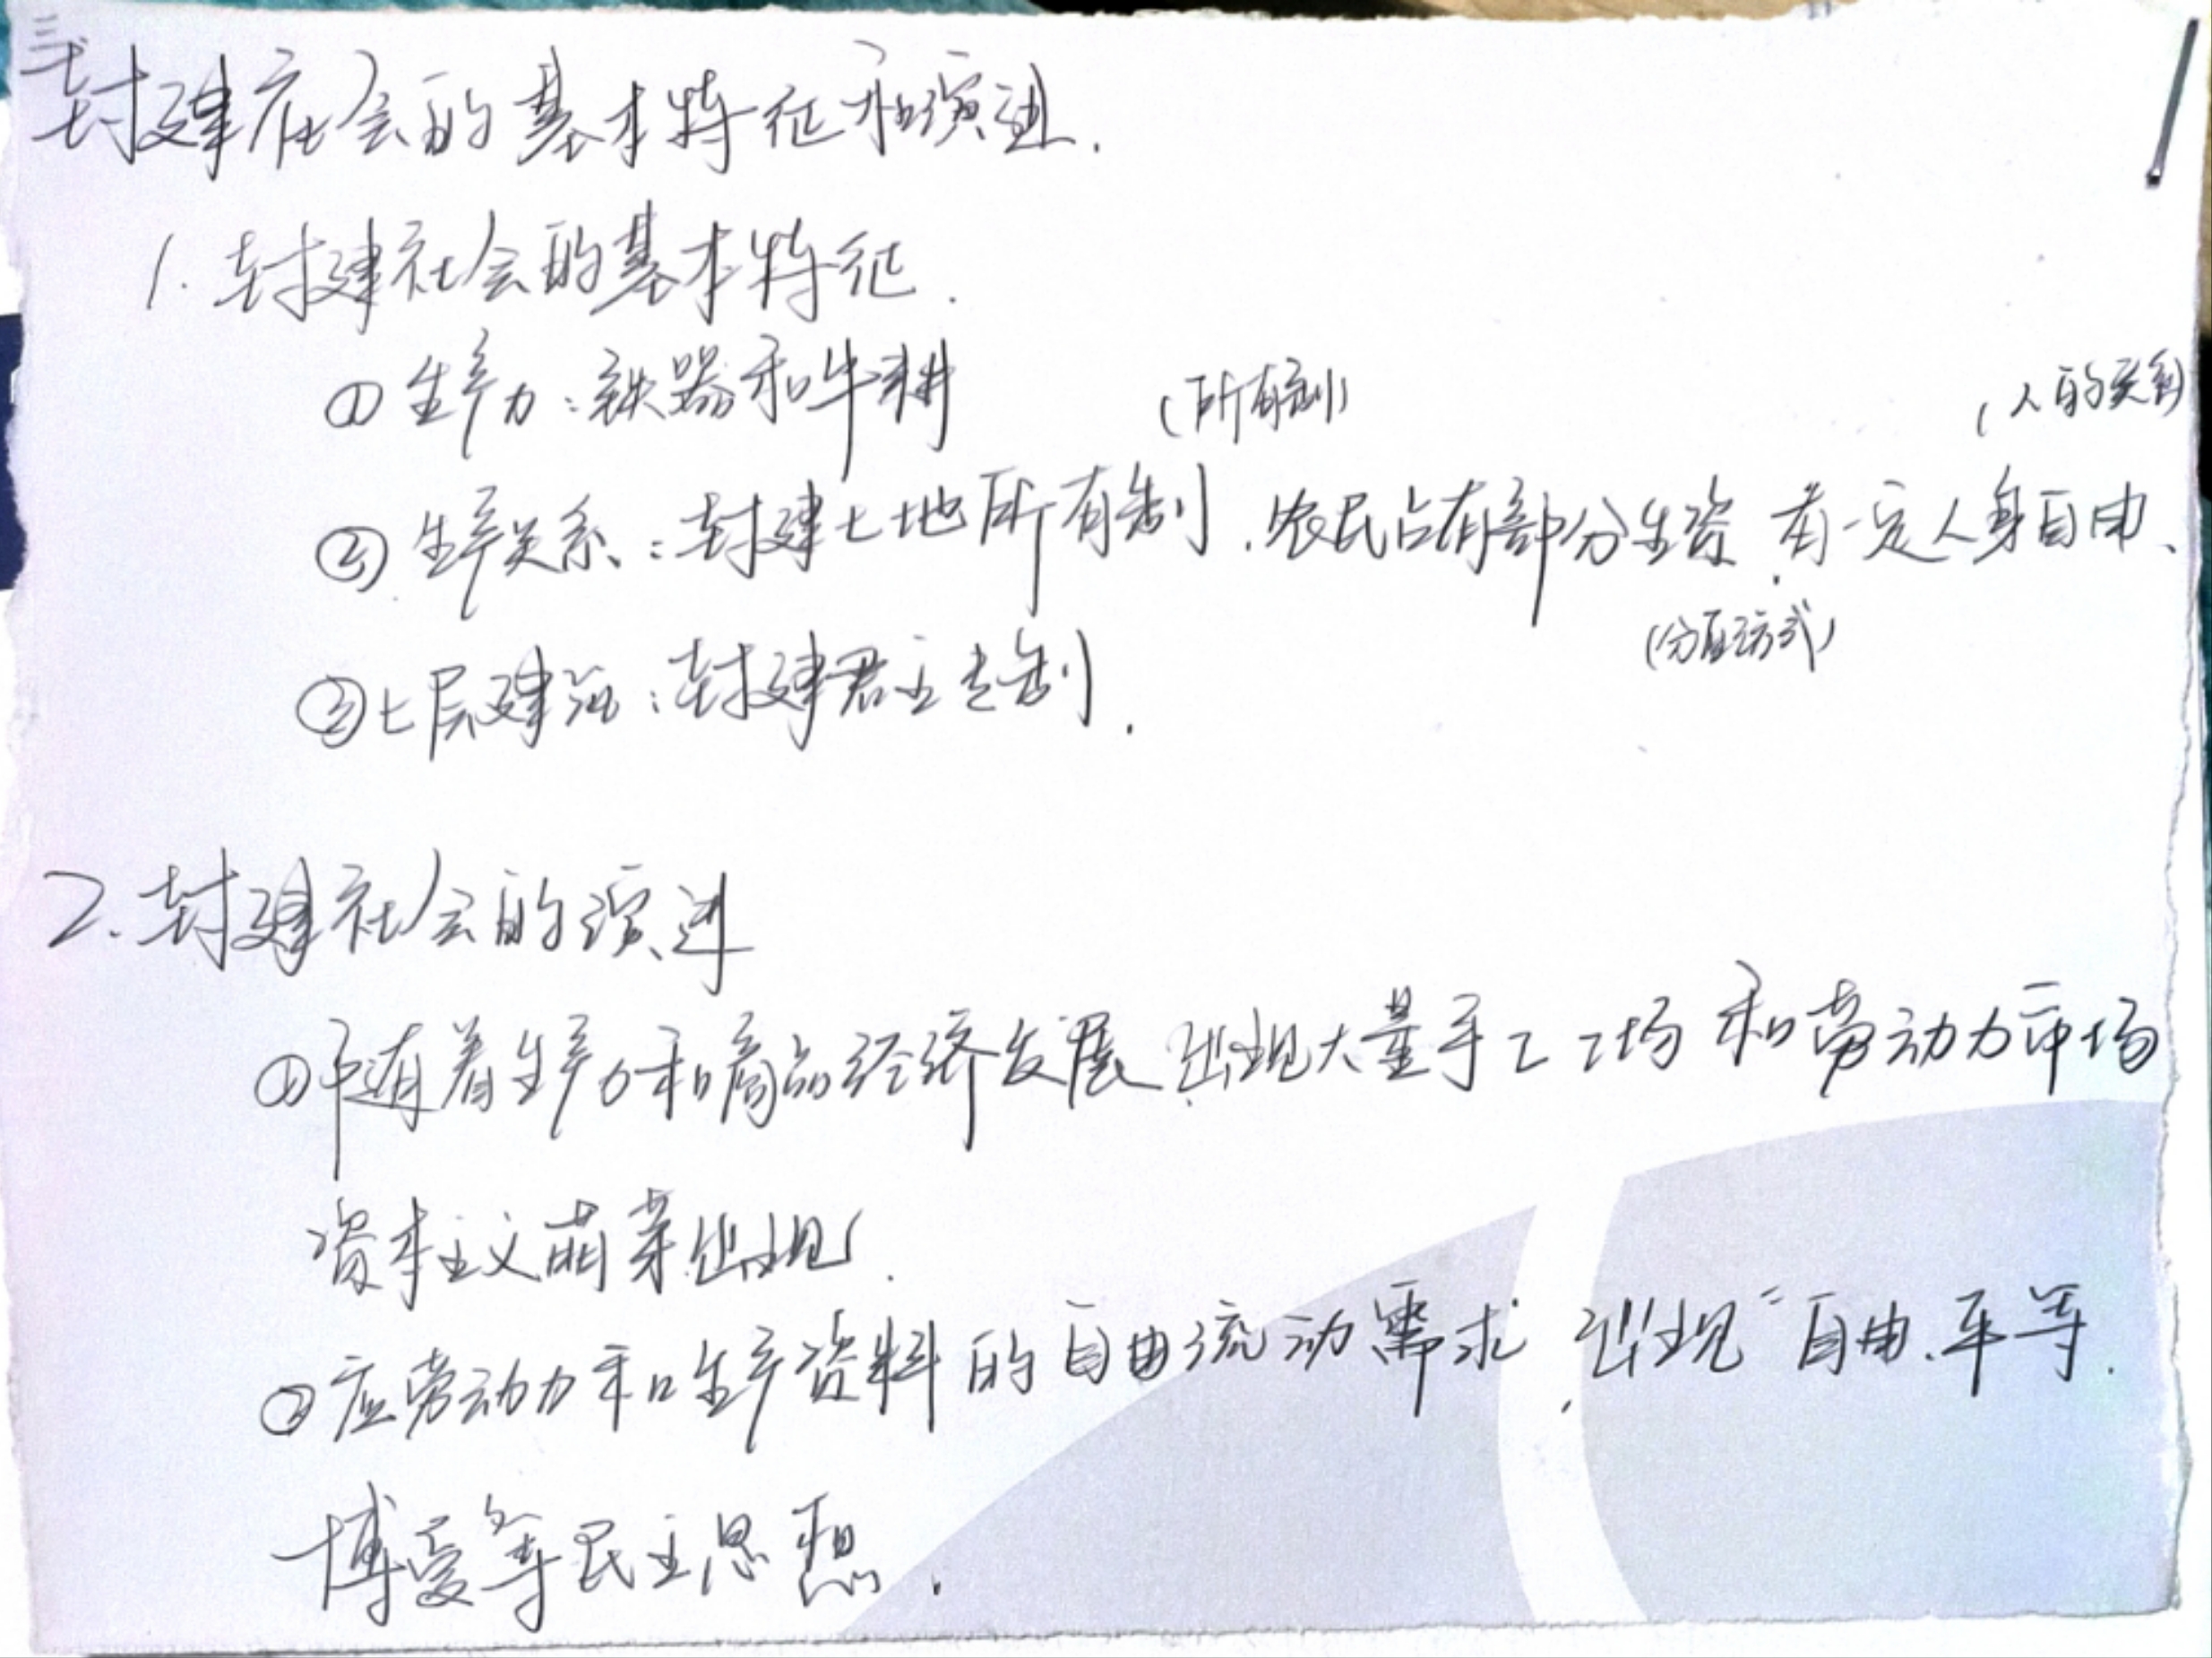 三、封建社会的基本特征和演进.
1. 封建社会的基本特征.
① 生产力：铁器和牛耕
(所有制)
(人的关系
② 生产关系：封建土地所有制.农民占有部分生资.有一定人身自由、
(分配方式)
③上层建筑：封建君主专制.
2.封建社会的演进
①随着生产力和商品经济发展.出现大量手工工场 和劳动力市场
资本主义萌芽出现.
②应劳动力和生产资料的自由流动需求,出现"自由.平等.
博爱等民主思想.